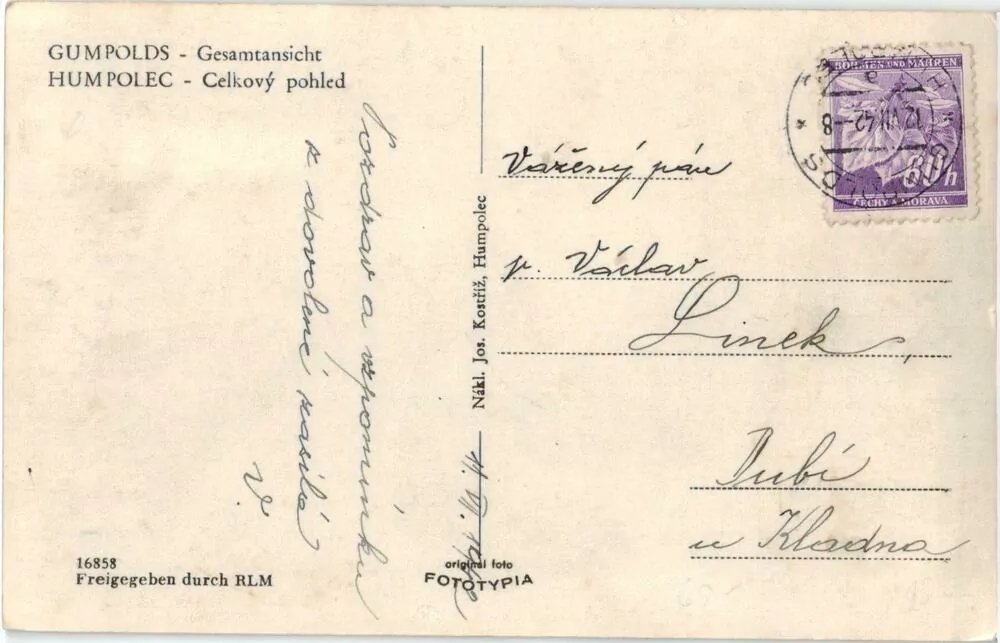 GUMPOLDS - Gesamtansicht
HUMPOLEC - Celkový pohled
Pozdrav a vzpomínku
z dovolené zasílá
V.
16858
Freigegeben durch RLM
Nákl. Jos. Kostříž, Humpolec
original foto
FOTOTYPIA
BÖHMEN UND MÄHREN
12.VII.42.-8
80 h
ČECHY A MORAVA
Vážený pán
p. Václav
Linek,
Dubí
u Kladna